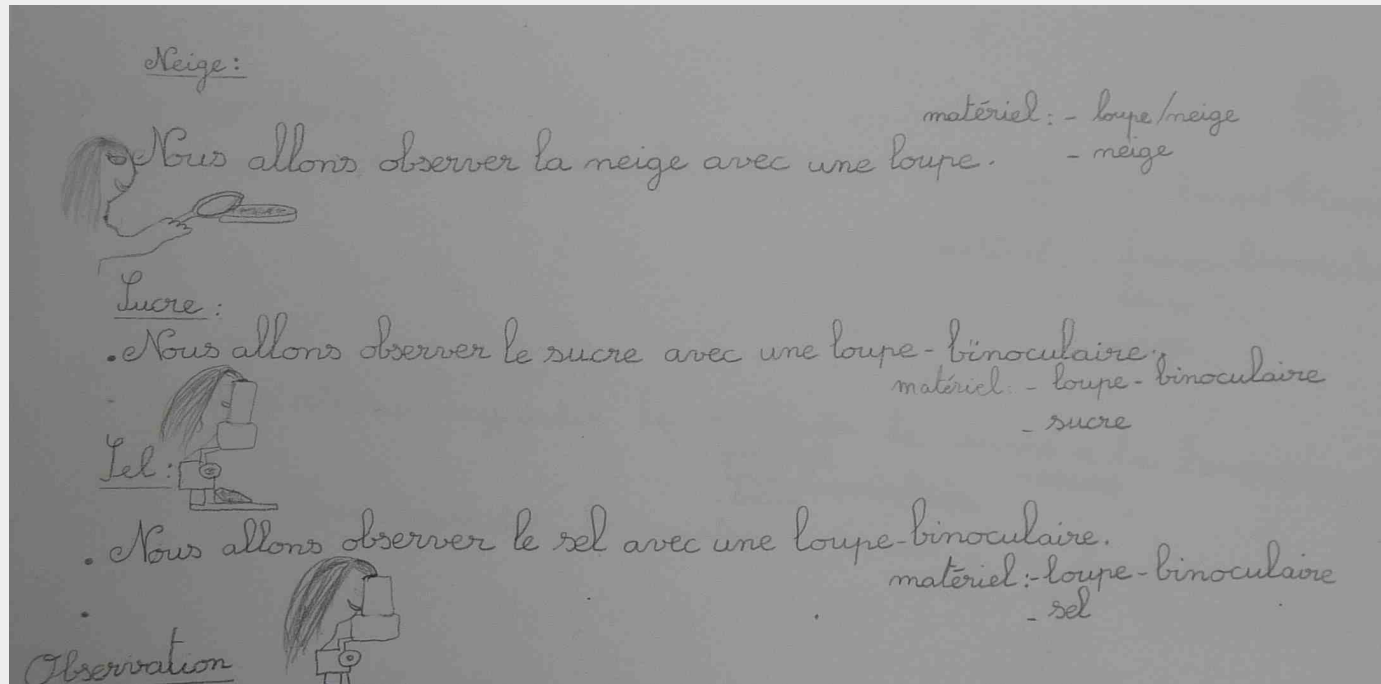 Neige :
matériel : - loupe/neige
Nous allons observer la neige avec une loupe.
- neige
Sucre :
. Nous allons observer le sucre avec une loupe-binoculaire.
matériel : - loupe-binoculaire
- sucre
Sel :
. Nous allons observer le sel avec une loupe-binoculaire.
matériel :- loupe-binoculaire
- sel
Observation